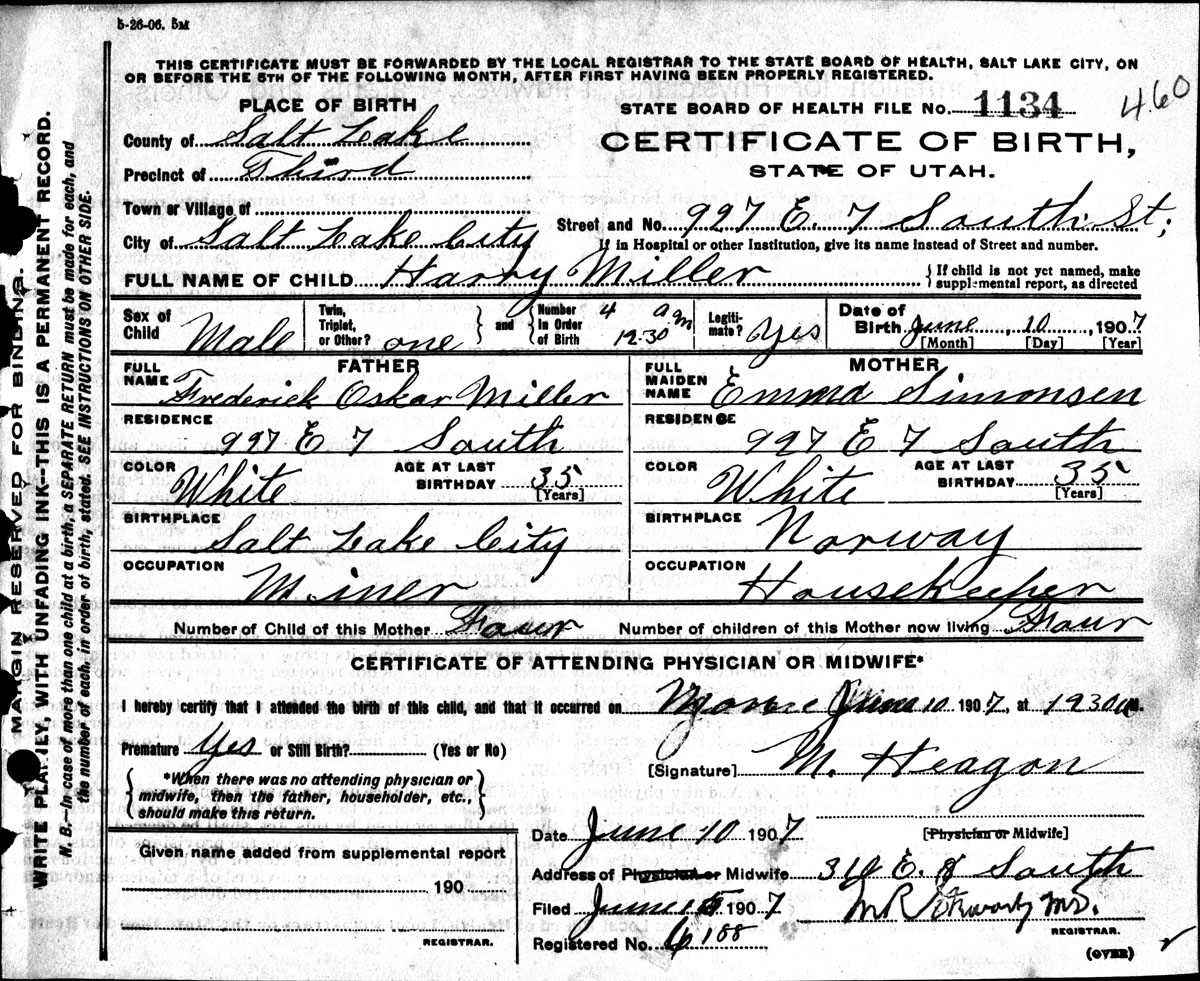 5-26-06. 5M
THIS CERTIFICATE MUST BE FORWARDED BY THE LOCAL REGISTRAR TO THE STATE BOARD OF HEALTH, SALT LAKE CITY, ON
OR BEFORE THE 5TH OF THE FOLLOWING MONTH, AFTER FIRST HAVING BEEN PROPERLY REGISTERED.
PLACE OF BIRTH
STATE BOARD OF HEALTH FILE No. 1134
460
County of Salt Lake
CERTIFICATE OF BIRTH,
Precinct of Third
STATE OF UTAH.
Town or Village of
Street and No. 927 E. 7 South St;
City of Salt Lake City
If in Hospital or other Institution, give its name instead of Street and number.
FULL NAME OF CHILD Harry Miller
{ If child is not yet named, make
supplemental report, as directed
Sex of Child Male
Twin, Triplet, or Other? one } and { Number in Order of Birth 4 12-30 am
Legitimate? Yes
Date of Birth June, 10, 1907
[Month] [Day] [Year]
FATHER
FULL NAME Frederick Oskar Miller
RESIDENCE
927 E 7 South
COLOR White
AGE AT LAST BIRTHDAY 35
[Years]
BIRTHPLACE
Salt Lake City
OCCUPATION
Miner
MOTHER
FULL MAIDEN NAME Emma Simonsen
RESIDENCE
927 E 7 South
COLOR White
AGE AT LAST BIRTHDAY 35
[Years]
BIRTHPLACE Norway
OCCUPATION
Housekeeper
Number of Child of this Mother Four Number of children of this Mother now living Four
CERTIFICATE OF ATTENDING PHYSICIAN OR MIDWIFE*
I hereby certify that I attended the birth of this child, and that it occurred on June 10 1907, at 1230 a m.
Premature Yes or Still Birth? (Yes or No)
[Signature] M. Heagon
{ *When there was no attending physician or
midwife, then the father, householder, etc.,
should make this return. }
Date June 10 1907
[Physician or Midwife]
Given name added from supplemental report
190
REGISTRAR.
Address of Physician or Midwife 310 E. 8 South
Filed June 15 1907
M.D.
REGISTRAR.
Registered No. 6188
(OVER)
MARGIN RESERVED FOR BINDING.
WRITE PLAINLY, WITH UNFADING INK—THIS IS A PERMANENT RECORD.
N. B.—In case of more than one child at a birth, a SEPARATE RETURN must be made for each, and
the number of each, in order of birth, stated. SEE INSTRUCTIONS ON OTHER SIDE.